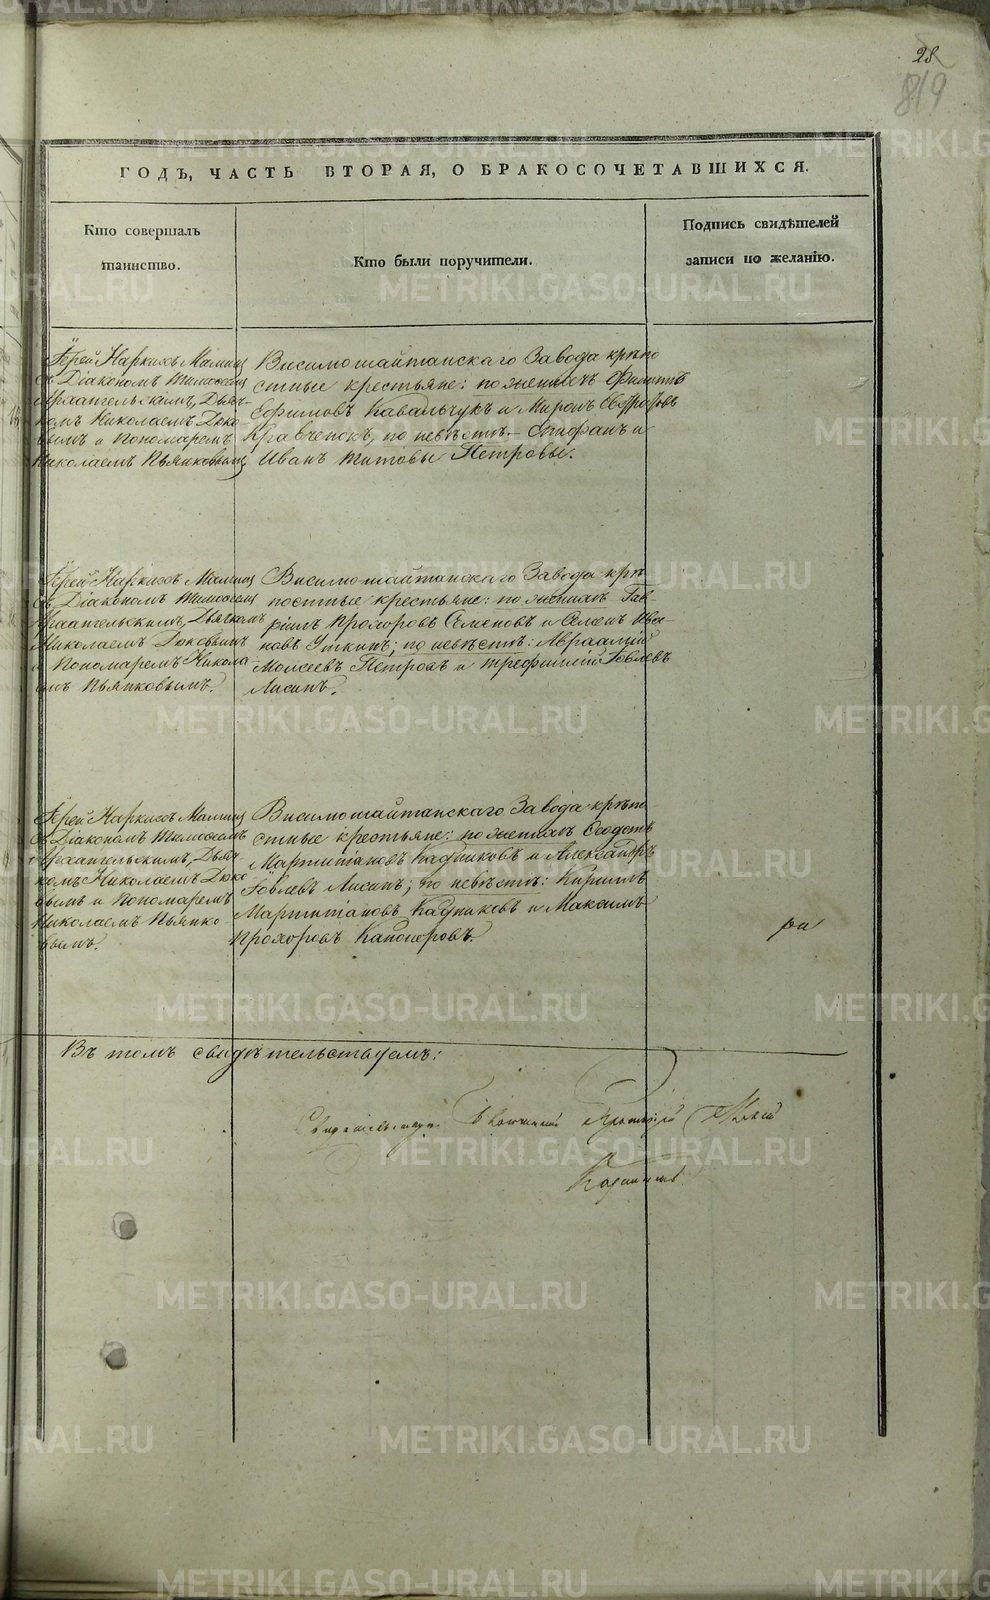 28
819
ГОДЪ, ЧАСТЬ ВТОРАЯ, О БРАКОСОЧЕТАВШИХСЯ.
Кто совершалъ
таинство.
Кто были поручители.
Подпись свидѣтелей
записи по желанію.
Іерей Наркисъ Мамин
съ Діакономъ Тимоѳеем
Архангельскимъ, Дьяч-
комъ Николаемъ Дюко-
вымъ и Пономаремъ
Николаемъ Пьянковымъ
Висимошайтанскаго Завода крѣпо
стные крестьяне: по женихѣ Филиппъ
Ефимовъ Кавальчукъ и Миронъ
Кравченокъ, по невѣстѣ Стефанъ и
Иванъ Титовы Петровы.
Іерей Наркисъ Мамин
съ Діакономъ Тимоѳеем
Архангельскимъ, Дьячкомъ
Николаемъ Дюковымъ
и Пономаремъ Никола-
емъ Пьянковымъ.
Висимошайтанскаго Завода крѣ
постные крестьяне: по женихѣ Гав-
ріилъ Прохоровъ Семеновъ и Семенъ Ива-
новъ Уткинъ; по невѣстѣ: Авраамій
Моисеевъ Петровъ и Трефилій Іовлевъ
Лисинъ.
Іерей Наркисъ Мамин
съ Діакономъ Тимоѳеемъ
Архангельскимъ, Дьяч
комъ Николаемъ Дюко
вымъ и Пономаремъ
Николаемъ Пьянко
вымъ.
Висимошайтанскаго Завода крѣпо
стные крестьяне: по женихѣ Ѳедотъ
Мартиніановъ Кадниковъ и Александръ
Іовлевъ Лисинъ; по невѣстѣ: Кириллъ
Мартиніановъ Кадниковъ и Максимъ
Прохоровъ Канонеровъ.
Въ томъ свидѣтельствуемъ:
METRIKI.GASO-URAL.RU